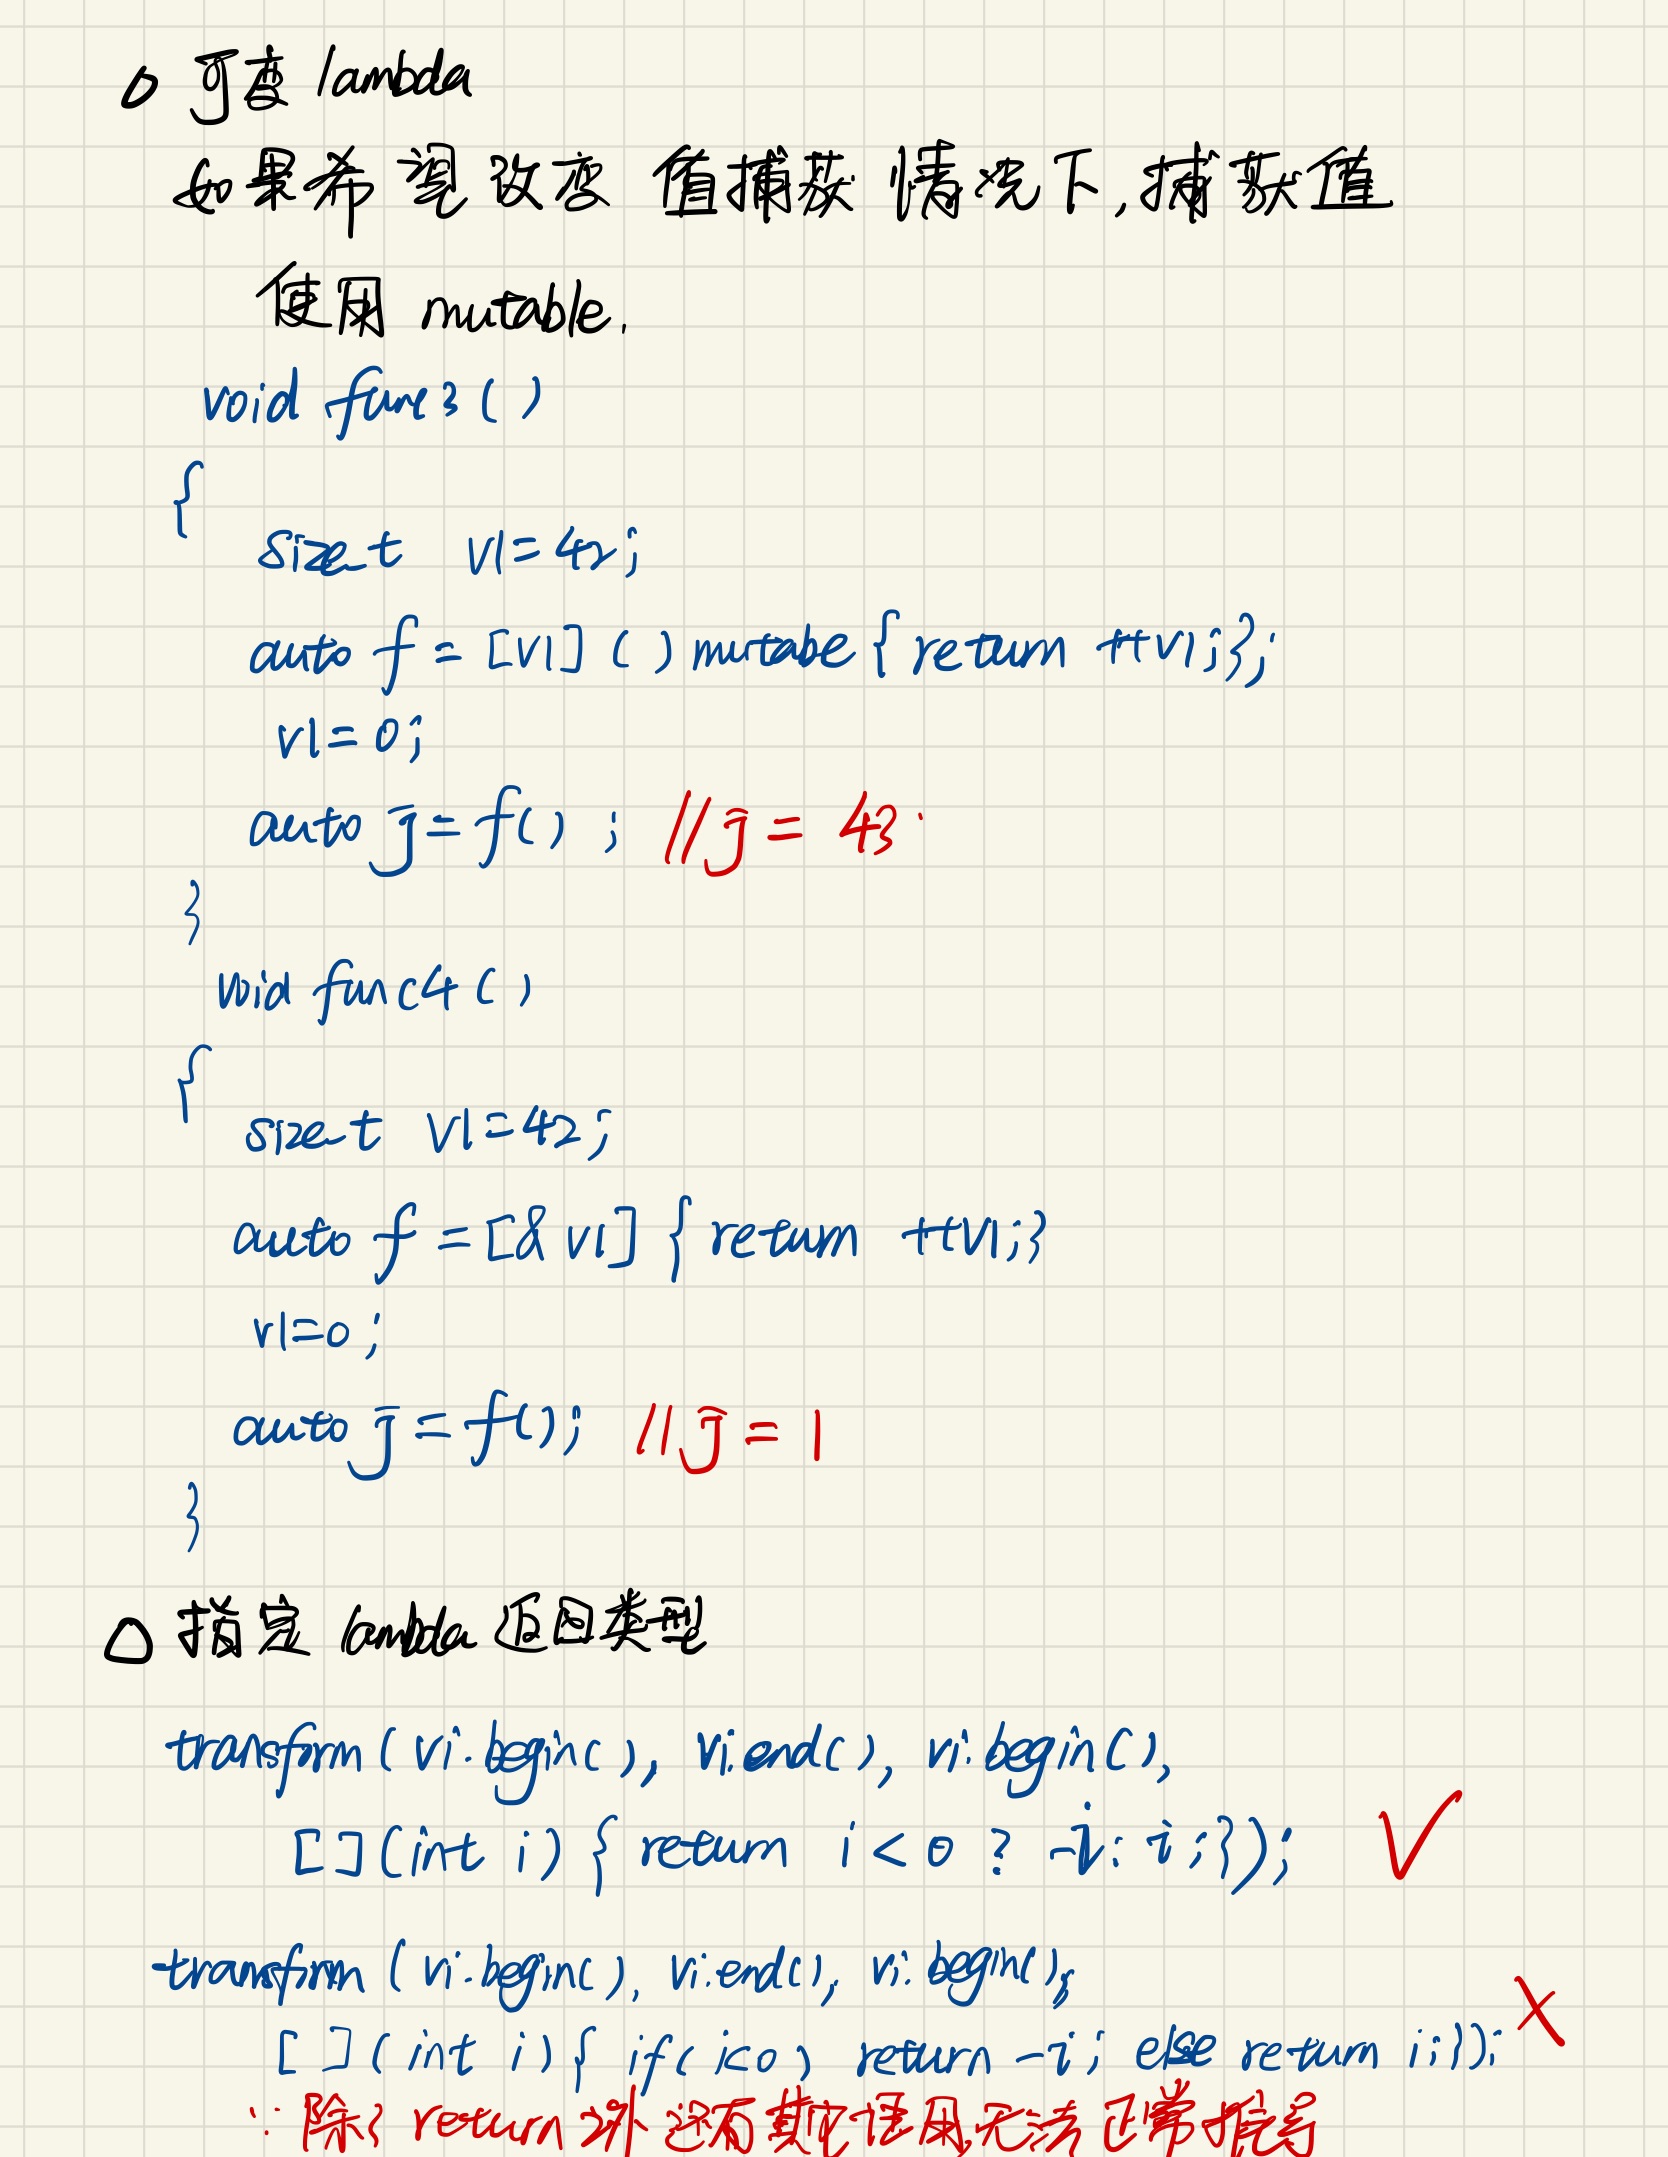 可变 lambda
如果希望改变 值捕获 情况下,捕获值
使用 mutable.
void func3 ( )
{
size_t v1=42;
auto f = [v1] ( ) mutabe { return ++v1;};
v1=0;
auto j=f( ) ; //j = 43
}
void func4 ( )
{
size_t v1=42;
auto f =[& v1] { return ++v1;}
v1=0;
auto j=f(); //j=1
}
△ 指定 lambda 返回类型
transform ( vi.begin( ), vi.end( ), vi.begin( ),
[ ](int i) { return i<0 ? -i: i;}); √
transform ( vi.begin( ), vi.end( ), vi.begin( ),
[ ](int i){ if( i<0 ) return -i; else return i;}); ×
∵ 除了 return 之外还有其它语句,无法正常推导